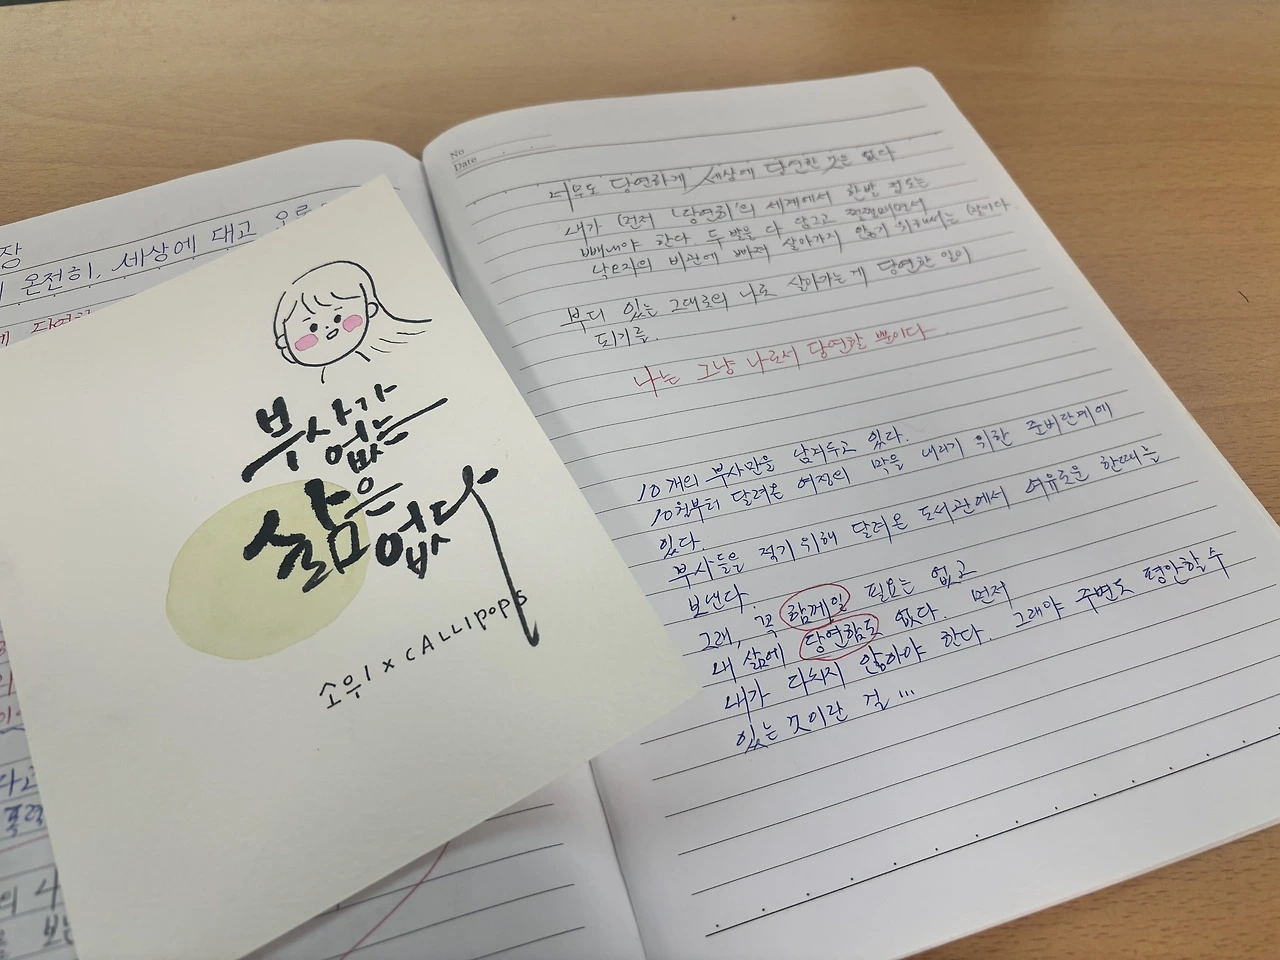 장
온전히, 세상에 대고
부사가
없는
삶은
없다
소위 x cALLIpops
No
Date
너무도 당연하게 세상에 당연한 것은 없다
내가 먼저 '당연히'의 세계에서 한발 정도는
빼내야 한다 두 발을 다 담그고
낙오자의 비관에 빠져 살아가지 않기 위해서는 말이다.
부디 있는 그대로의 나로 살아가는 게 당연한 일이
되기를.
나는 그냥 나로서 당연할 뿐이다
10개의 부사만을 남겨두고 있다.
10월부터 달려온 여정의 막을 내리기 위한 준비단계에
있다.
부사들을 적기 위해 달려온 도서관에서 여유로운 한때를
보낸다.
그래, 꼭 함께일 필요는 없고
내 삶에 당연함도 없다. 먼저
내가 다치지 않아야 한다. 그래야 주변도 평안할 수
있는 것이란 걸...